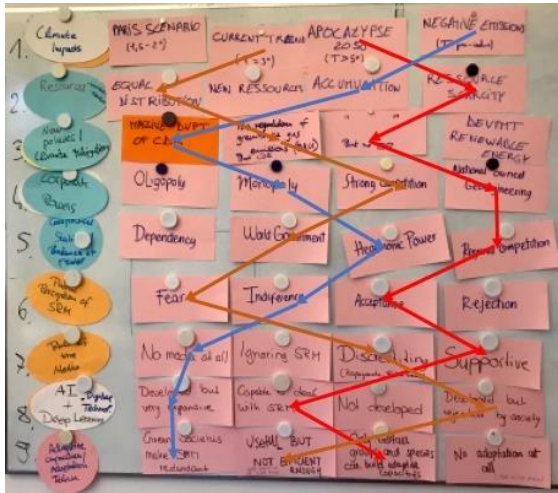 1.
Climate
Impacts
PARIS SCENARIO
(1,5-2°)
CURRENT TREND
(T = 3°)
APOCALYPSE
2050
(T > 5°)
NEGATIVE EMISSIONS
2.
Resources
EQUAL
DISTRIBUTION
NEW RESSOURCES
ACCUMULATION
RESSOURCE
SCARCITY
3.
MASSIVE DVPT
OF CDR
regulation of
greenhouse gas
emissions
But
DEVPMT
RENEWABLE
ENERGY
4.
Corporate
Powers
OLIGOPOLY
Monopoly
Strong Competition
National owned
Geoengineering
5.
Geopolitical
Scale
Balance of Power
Dependency
World Government
Hegemonic Power
Regional Competition
6.
Public
Perception of
SRM
Fear
Indifference
Acceptance
Rejection
7.
Role of
the
Media
No media at all
Ignoring SRM
Discrediting
Supportive
8.
AI
+ Digital
Deep Learning
Developed but
very expensive
Capable to deal
with SRM
Not developed
Developed but
rejected by society
9.
Adaptive
capacities
Green societies
make SRM
redundant
USEFUL BUT
NOT EFFICIENT
ENOUGH
Only certain
groups and species
can build adaptive
capacities
No adaptation at
all